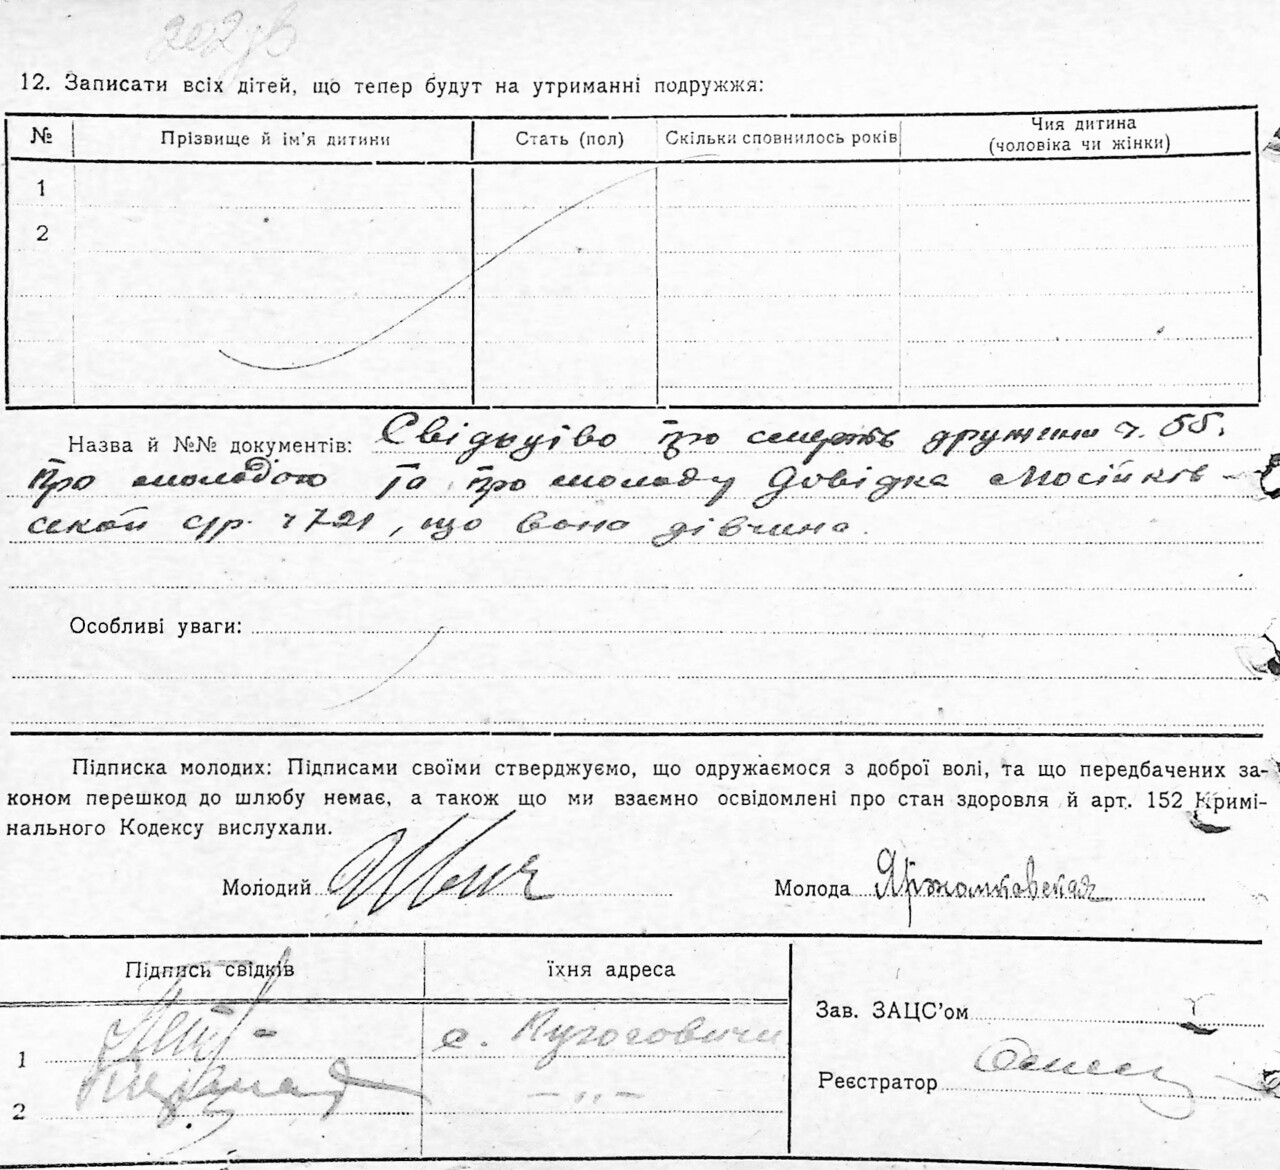 12. Записати всіх дітей, що тепер будут на утриманні подружжя:
№ Прізвище й ім'я дитини Стать (пол) Скільки сповнилось років Чия дитина
(чоловіка чи жінки)
1
2
Назва й №№ документів: Свідоцтво про смерть дружини ч. 55.
Про молодого та про молоду Довідка Мосійків-
ської с/р. ч 721, що вона дівчина.
Особливі уваги:
Підписка молодих: Підписами своїми стверджуємо, що одружаємося з доброї волі, та що передбачених за-
коном перешкод до шлюбу немає, а також що ми взаємно освідомлені про стан здоровля й арт. 152 Кримі-
нального Кодексу вислухали.
Молодий Молода Яржомковская
Підпись свідків їхня адреса
Зав. ЗАЦС'ом
1 с.
Реєстратор
2 – „ –